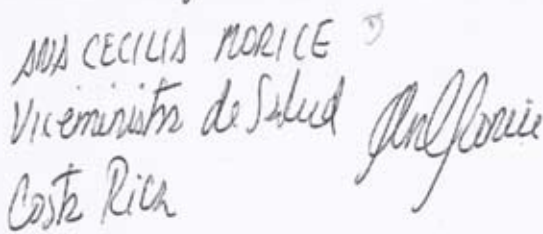 ANA CECILIA MORICE
Viceministra de Salud
Costa Rica